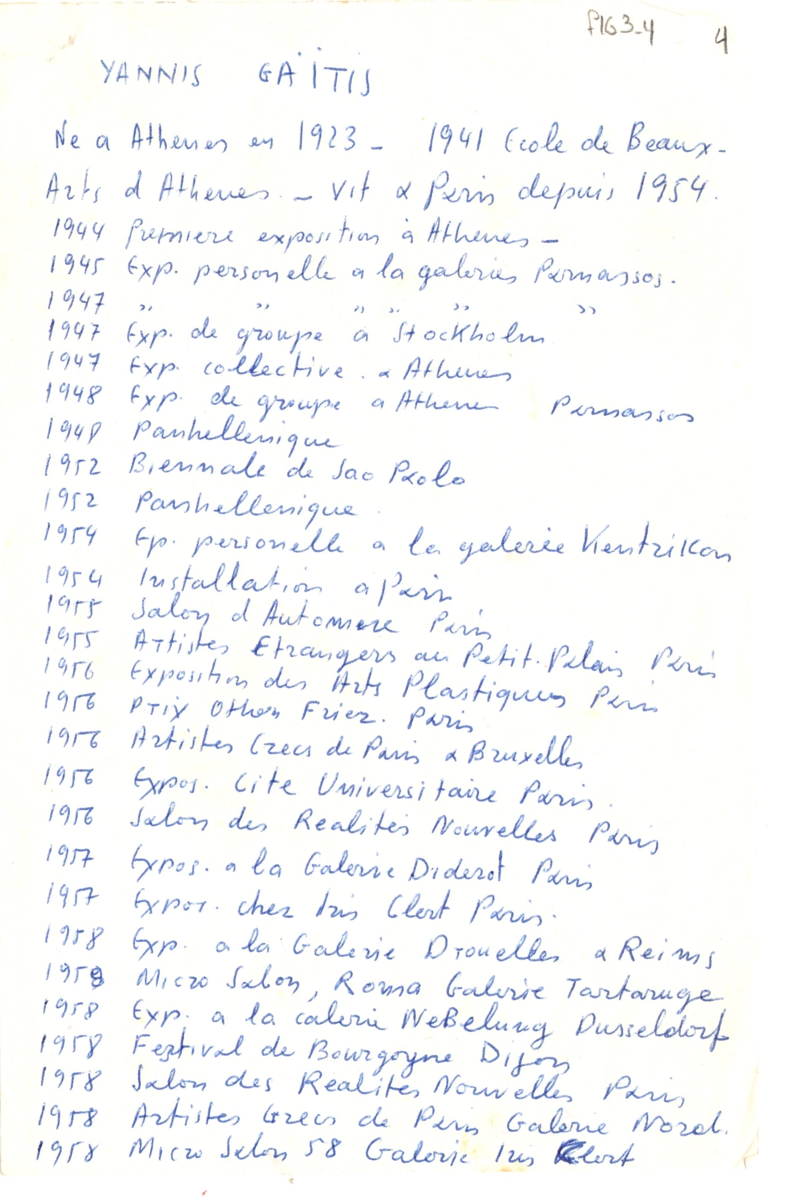 FIG 3-4 4
YANNIS GAÏTIS
Ne a Athenes en 1923 - 1941 Ecole de Beaux-
Arts d Athenes - Vit a Paris depuis 1954.
1944 Premiere exposition à Athenes -
1945 Exp. personelle a la galeries Parnassos.
1947 " " " " " "
1947 Exp. de groupe a Stockholm
1947 Exp. collective. a Athenes
1948 Exp. de groupe a Athenes Parnassos
1948 Panhellenique
1952 Biennale de Sao Paolo
1952 Panhellenique.
1954 Ep. personelle a la galerie Kentrikon
1954 Installation a Paris
1955 Salon d Automne Paris
1955 Artistes Etrangers au Petit-Palais Paris
1956 Exposition des Arts Plastiques Paris
1956 Prix Othon Friez. Paris
1956 Artistes Grecs de Paris a Bruxelles
1956 Expos. Cite Universitaire Paris.
1956 Salon des Realités Nouvelles Paris
1957 Expos. a la Galerie Diderot Paris
1957 Expos. chez Iris Clert Paris.
1958 Exp. a la Galerie Drouelles a Reims
1958 Micro Salon, Roma Galerie Tartaruge
1958 Exp. a la calerie Nebelung Dusseldorf
1958 Festival de Bourgogne Dijon
1958 Salon des Realites Nouvelles Paris
1958 Artistes Grecs de Paris Galerie Nord.
1958 Micro Salon 58 Galerie Iris Clert